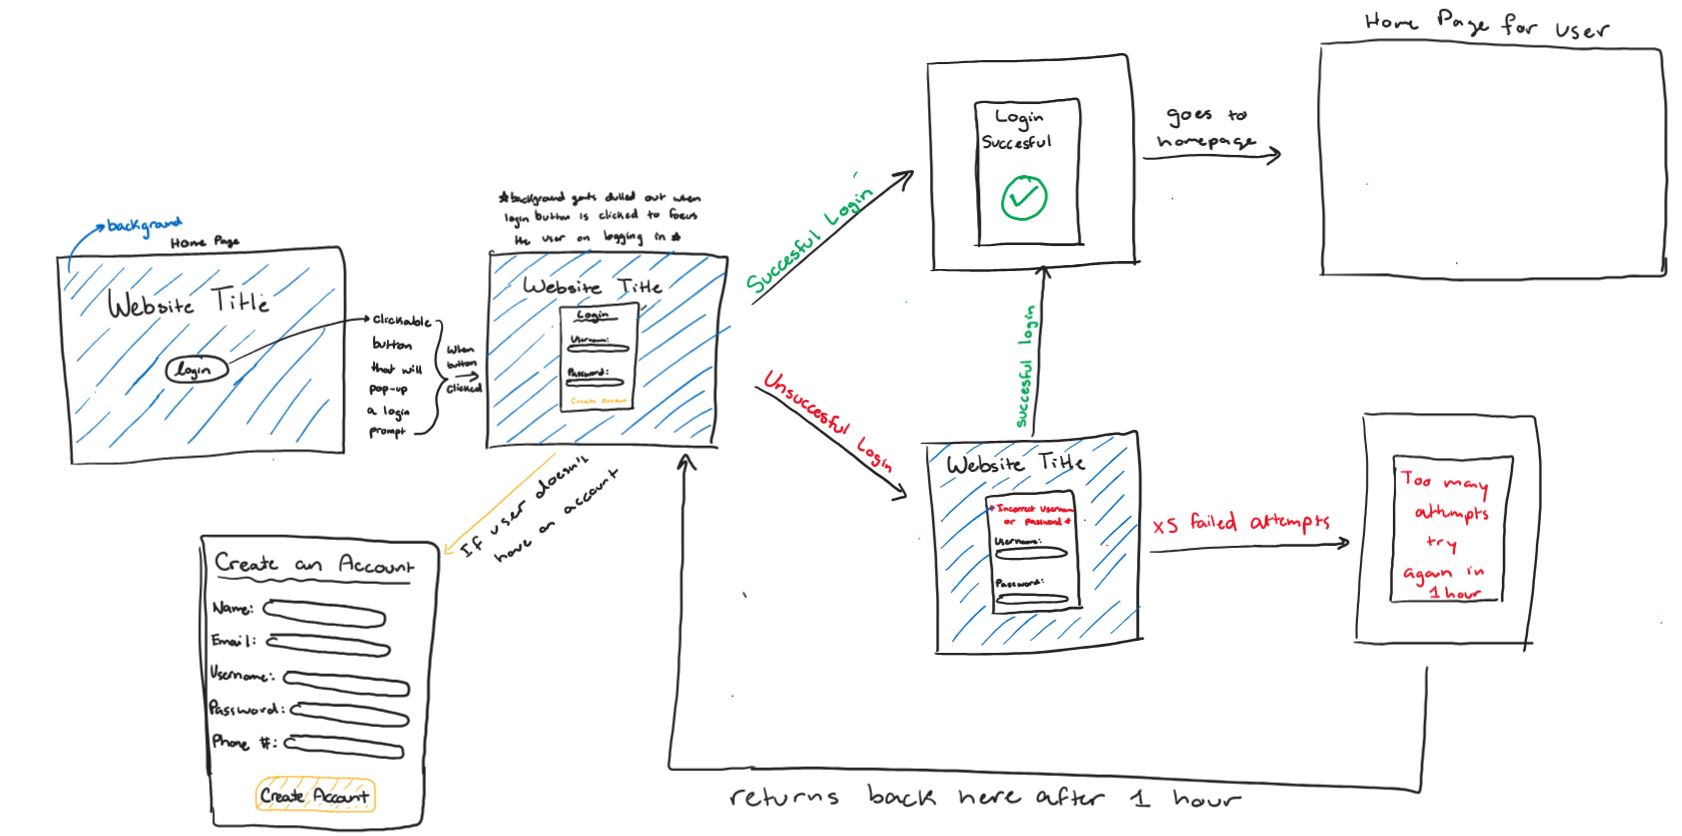 background
Home Page
Website Title
login
clickable
button
that will
pop-up
a login
prompt
When
button
clicked
*background gets dulled out when
login button is clicked to focus
the user on logging in*
Website Title
Login
Username:
Password:
Create Account
If user doesn't
have an account
Create an Account
Name:
Email:
Username:
Password:
Phone #:
Create Account
Succesful Login
Login
Succesful
goes to
homepage
Home Page for user
Unsuccesful Login
succesful login
Website Title
*Incorrect Username
or password*
Username:
Password:
x5 failed attempts
Too many
attumpts
try
again in
1 hour
returns back here after 1 hour